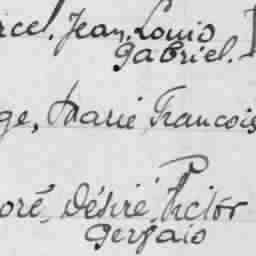 rcel, Jean, Louis
Gabriel.
ge, Marie, Francois
oré, Désiré, Victor
Gervais